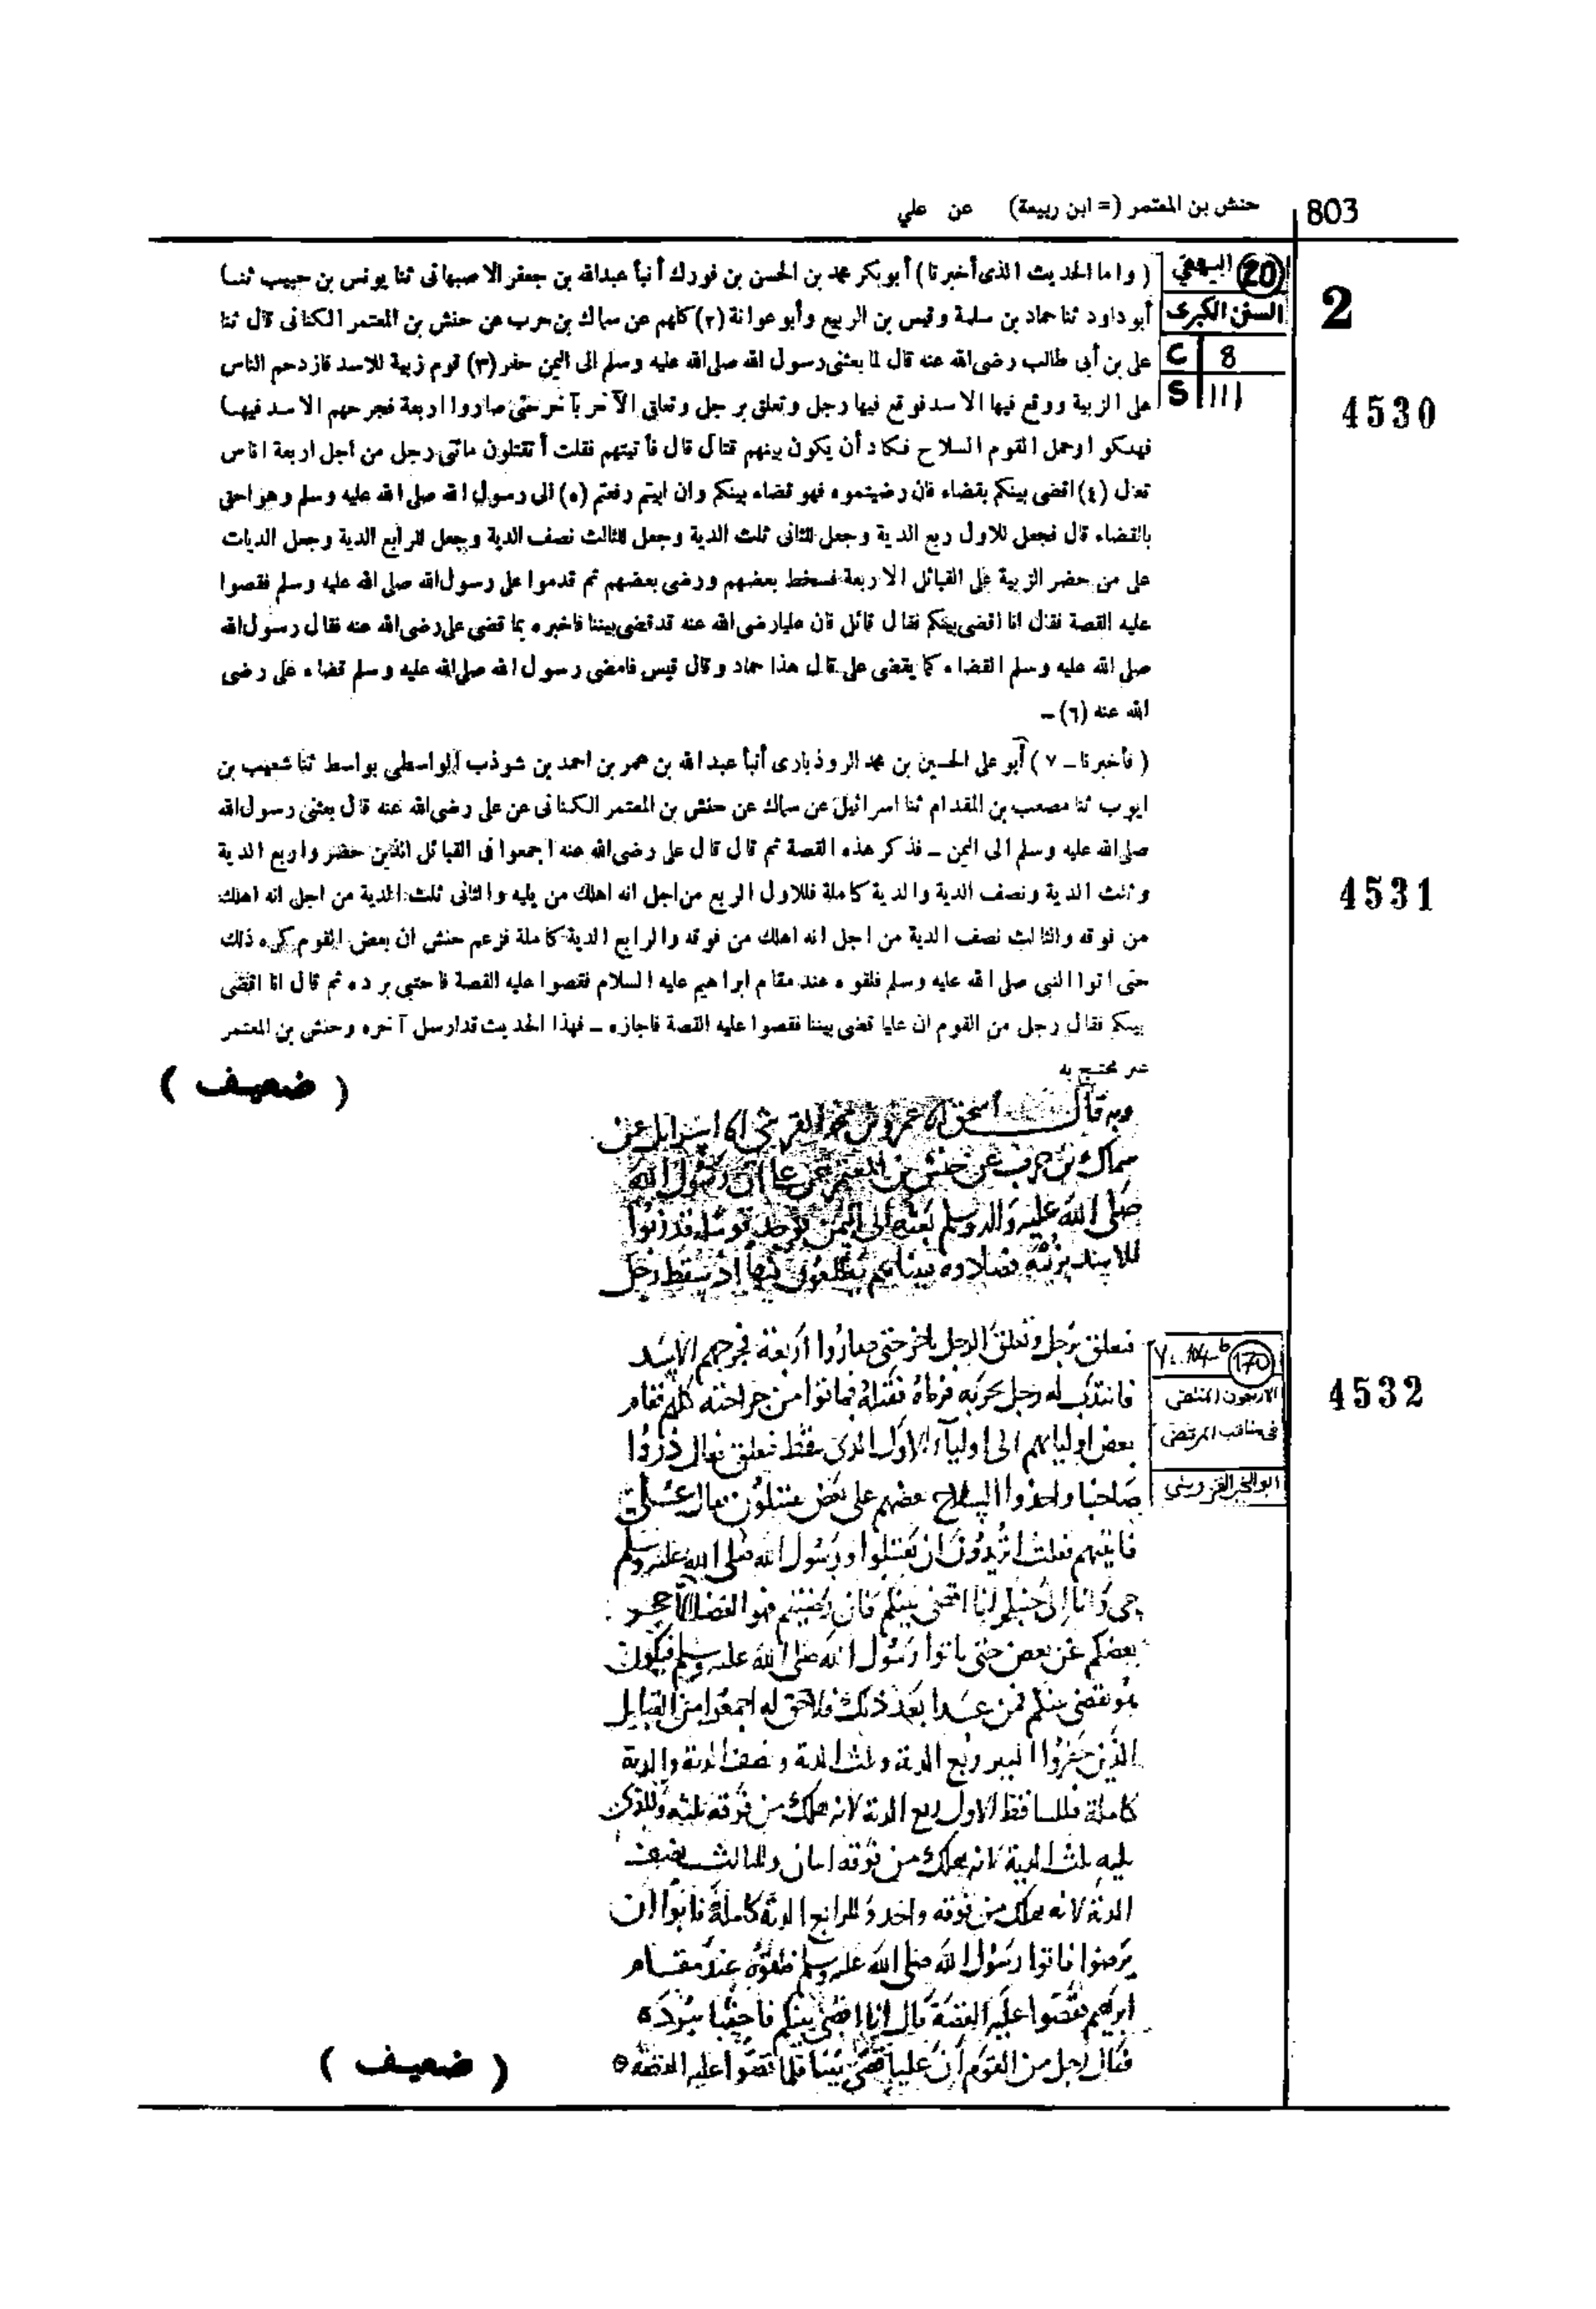 803
حنش بن المعتمر (= ابن ربيعة) عن علي
20 البيهقي
السنن الكبرى
C 8
S 111
2
4530
( واما الحديث الذى أخبرنا ) أبوبكر محمد بن الحسن بن فورك أنبأ عبدالله بن جعفر الاصبهانى ثنا يونس بن حبيب ثنا
أبو داود ثنا حماد بن سلمة وقيس بن الربيع وأبو عوانة (٢) كلهم عن سماك بن حرب عن حنش بن المعتمر الكنانى قال ثنا
على بن أبى طالب رضى الله عنه قال لما بعثنى رسول الله صلى الله عليه وسلم الى اليمن حفر (٣) قوم زبية للاسد فازدحم الناس
على الزبية ووقع فيها الاسد فوقع فيها رجل وتعلق برجل وتعلق الآخر بآخر حتى صاروا اربعة فجرحهم الاسد فيها
فهلكوا وحمل القوم السلاح فكاد أن يكون بينهم قتال قال فأتيتهم فقلت أتقتلون مائتى رجل من أجل اربعة اناس
تعال (٤) اقضى بينكم بقضاء فان رضيتموه فهو قضاء بينكم وان ابيتم رفعتم (٥) الى رسول الله صلى الله عليه وسلم وهو احق
بالقضاء قال فجعل للاول ربع الدية وجعل للثانى ثلث الدية وجعل للثالث نصف الدية وجعل للرابع الدية وجعل الديات
على من حضر الزبية على القبائل الاربعة فسخط بعضهم ورضى بعضهم ثم قدموا على رسول الله صلى الله عليه وسلم فقصوا
عليه القصة فقال انا اقضى بينكم فقال قائل فان عليا رضى الله عنه قد قضى بيننا فاخبره بما قضى على رضى الله عنه فقال رسول الله
صلى الله عليه وسلم القضاء كما يقضى على قال هذا حماد وقال قيس فامضى رسول الله صلى الله عليه وسلم قضاء على رضى
الله عنه (٦) ـ
( فأخبرنا ـ ٧ ) أبو على الحسين بن محمد الروذبارى أنبأ عبد الله بن عمر بن احمد بن شوذب الواسطى بواسط ثنا شعيب بن
ايوب ثنا مصعب بن المقدام ثنا اسرائيل عن سماك عن حنش بن المعتمر الكنانى عن على رضى الله عنه قال بعثنى رسول الله
صلى الله عليه وسلم الى اليمن ـ فذكر هذه القصة ثم قال قال على رضى الله عنه اجمعوا فى القبائل الذين حضروا ربع الدية
وثلث الدية ونصف الدية والدية كاملة فللاول الربع من اجل انه اهلك من يليه والثانى ثلث الدية من اجل انه اهلك
4531
من فوقه والثالث نصف الدية من اجل انه اهلك من فوقه والرابع الدية كاملة فزعم حنش ان بعض القوم كره ذلك
حتى اتوا النبى صلى الله عليه وسلم فلقوه عند مقام ابراهيم عليه السلام فقصوا عليه القصة فاحتبى برده ثم قال انا اقضى
بينكم فقال رجل من القوم ان عليا قضى بيننا فقصوا عليه القصة فاجازه ـ فهذا الحديث قد ارسل آخره وحنش بن المعتمر
غير محتج به
( ضعيف )
وبه قال اسحق انا عمرو بن محمد القرشي انا اسرايل عن
سماك بن حرب عن حنش بن المعتمر عن علي ان رسول الله
صلى الله عليه واله وسلم بعثه الى اليمن فوجد قوما قد زبوا
للاسد زبية فصادوه فبيناهم يتطلعون فيها اذ سقط رجل
فتعلق برجل وتعلق الرجل باخر حتى صاروا اربعة فجرحهم الاسد
170
الاربعون المنتقى
في مناقب المرتضى
ابو الخير القزويني
4532
فانتدب له رجل بحربه فرماه فقتله فماتوا من جراحته كلهم فقام
بعض اوليائهم الى اولياء الاول الذي سقط فتعلق فقال ردوا
صاحبنا واخذوا السلاح بعضهم على بعض يقتتلون فقال علي
فاتيتهم فقلت اتريدون ان تقتتلوا ورسول الله صلى الله عليه وسلم
حي وانا الى جنبكم انا اقضي بينكم فان رضيتم فهو القضا والا حجز
بعضكم عن بعض حتى ياتوا رسول الله صلى الله عليه وسلم فيكون
هو يقضي بينكم فمن عدا بعد ذلك فلا حق له اجمعوا من القبايل
الذين حفروا البير ربع الدية وثلث الدية ونصف الدية والدية
كاملة فللساقط الاول ربع الدية لانه هلك من فوقه ثلثة وللذي
يليه ثلث الدية لانه هلك من فوقه اثنان وللثالث نصف
الدية لانه هلك من فوقه واحد وللرابع الدية كاملة فابوا ان
يرضوا فاتوا رسول الله صلى الله عليه وسلم فلقوه عند مقام
ابرهيم فقصوا عليه القصة قال انا اقضي بينكم فاحتبا ببرده
فقال رجل من القوم ان عليا قضى بيننا فلما قصوا عليه القصة
( ضعيف )